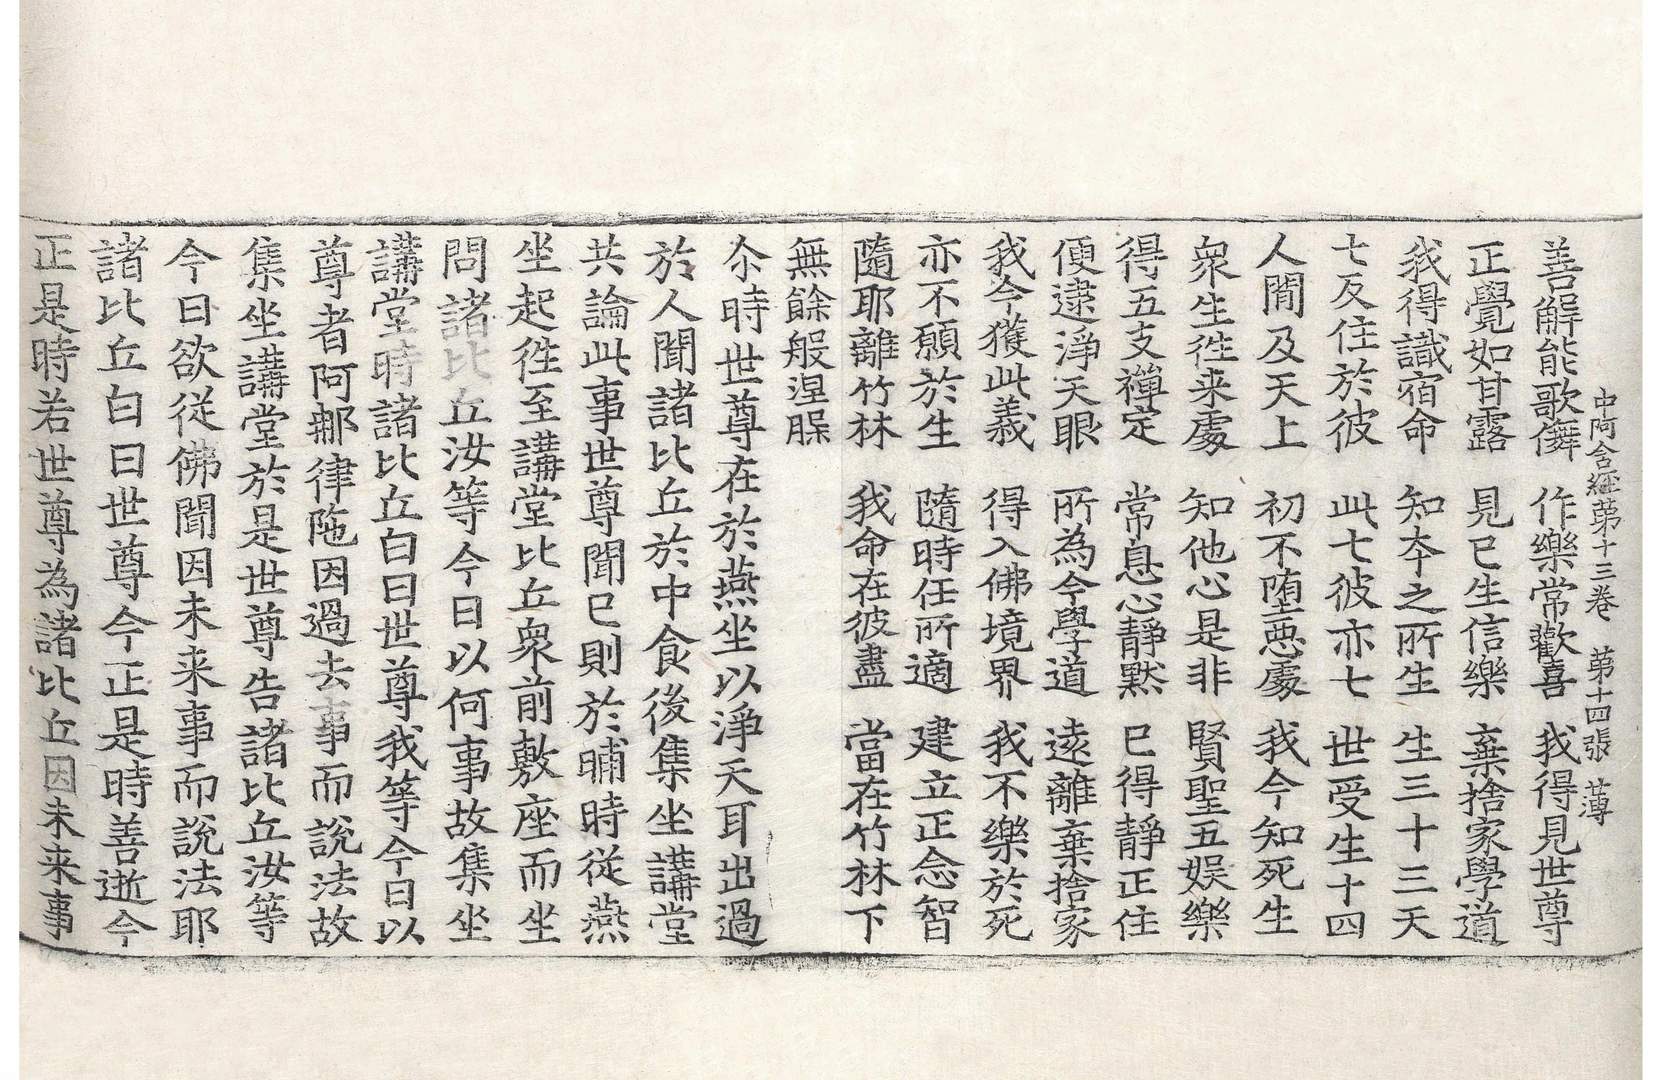 中阿含經第十三卷　第十四張　薄
善解能歌儛　作樂常歡喜　我得見世尊
正覺如甘露　見已生信樂　棄捨家學道
我得識宿命　知夲之所生　生三十三天
七反住於彼　此七彼亦七　世受生十四
人間及天上　初不堕惡處　我今知死生
衆生徃来處　知他心是非　賢聖五娱樂
得五支禪定　常息心靜默　已得靜正住
便逮淨天眼　所為今學道　遠離棄捨家
我今獲此義　得入佛境界　我不樂於死
亦不願於生　隨時任所適　建立正念智
隨耶離竹林　我命在彼盡　當在竹林下
無餘般涅槃
尒時世尊在於燕坐以淨天耳出過
於人聞諸比丘於中食後集坐講堂
共論此事世尊聞已則於晡時從燕
坐起徃至講堂比丘衆前敷座而坐
問諸比丘汝等今日以何事故集坐
講堂時諸比丘白曰世尊我等今日以
尊者阿那律陁因過去事而說法故
集坐講堂於是世尊告諸比丘汝等
今日欲従佛聞因未来事而說法耶
諸比丘白曰世尊今正是時善逝今
正是時若世尊為諸比丘因未来事